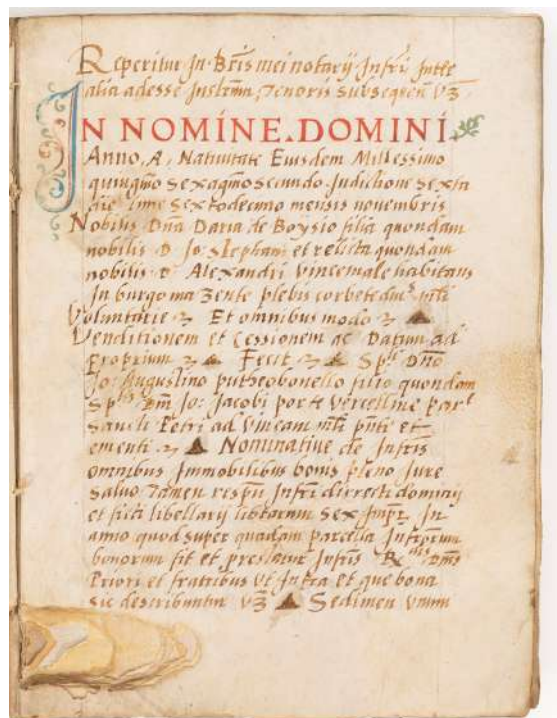 Reperitur In Bris mei notarij Infri Inter
alia adesse Instrm, Tenoris subsequen vz
IN NOMINE. DOMINI.
Anno, A, Nativitate Eiusdem Millessimo
quingmo sexagmo secundo Indictione sexta
die lune sextodecimo mensis novembris
Nobilis Dna Daria de Boysio filia quondam
nobilis D Jo: Stephani et relicta quondam
nobilis D Alexandri vincemale habitans
In burgo mazente plebis corbete
Voluntarie Et omnibus modo
Venditionem et Cessionem ac Datum ad
Proprium Fecit Sp Dno
Jo: Augustino putheobonello filio quondam
Sp Dm Jo: Jacobi porte vercelline par
Sancti Petri ad vineam mli pnti et
ementi Nominative de Infris
omnibus Immobilibus bonis pleno Iure
salvo, Tamen respu Infri directi dominij
et ficti libellarij librarum sex Impr, In
anno quod super quadam parcella Infrorum
bonorum fit et prestatur Infris R dnis
Priori et fratribus Ut Infra et que bona
sic describuntur vz Sedimen Unum